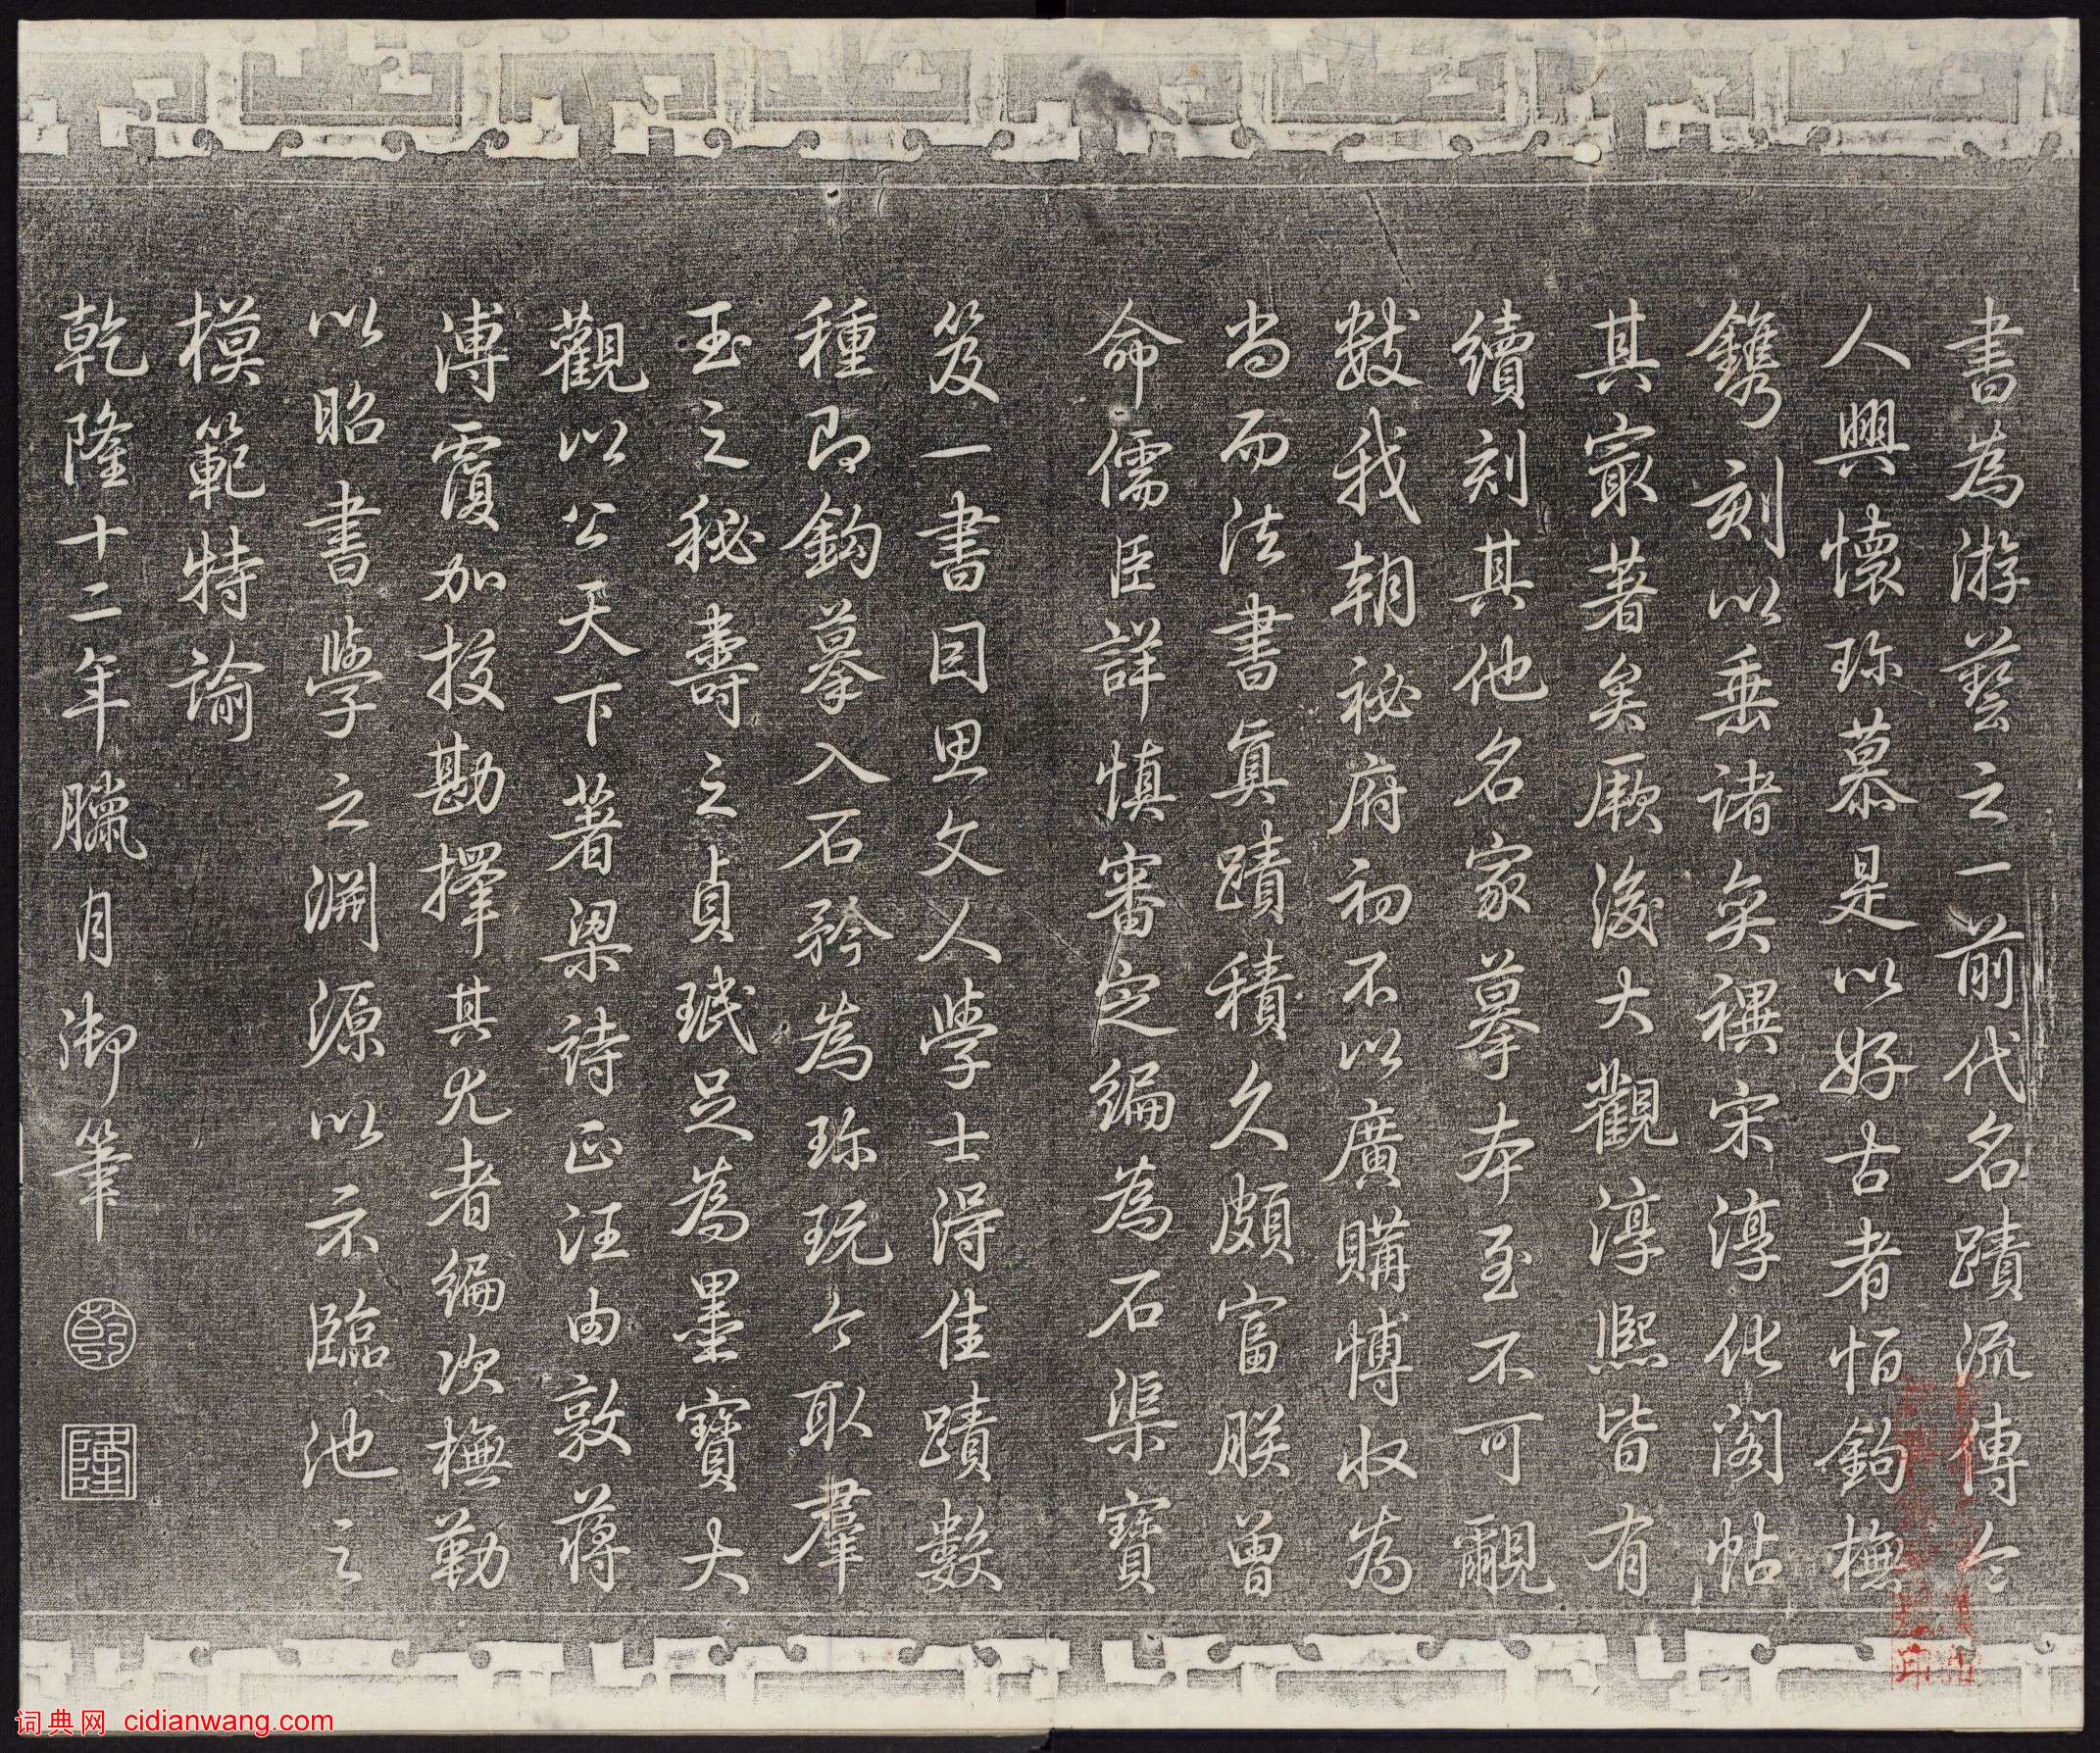 書為游藝之一前代名蹟流傳令
人興懷珎慕是以好古者恒鉤橅
鐫刻以垂諸奕禩宋淳化閣帖
其最著矣厥後大觀淳熙皆有
續刻其他名家摹本至不可覼
數我朝祕府初不以廣購博収為
尚而法書真蹟積久頗富朕曽
命儒臣詳慎審定編為石渠寶
笈一書因思文人學士得佳蹟數
種即鉤摹入石矜為珎玩今取羣
玉之秘壽之貞珉足為墨寶大
觀以公天下著梁詩正汪由敦蔣
溥覆加挍勘擇其尤者編次橅勒
以昭書學之淵源以示臨池之
模範特諭
乾隆十二年臘月御筆
乾
隆
词典网 cidianwang.com